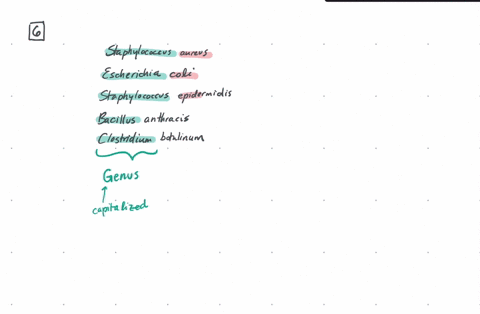 6
Staphylococcus aureus
Escherichia coli
Staphylococcus epidermidis
Bacillus anthracis
Clostridium botulinum
Genus
capitalized